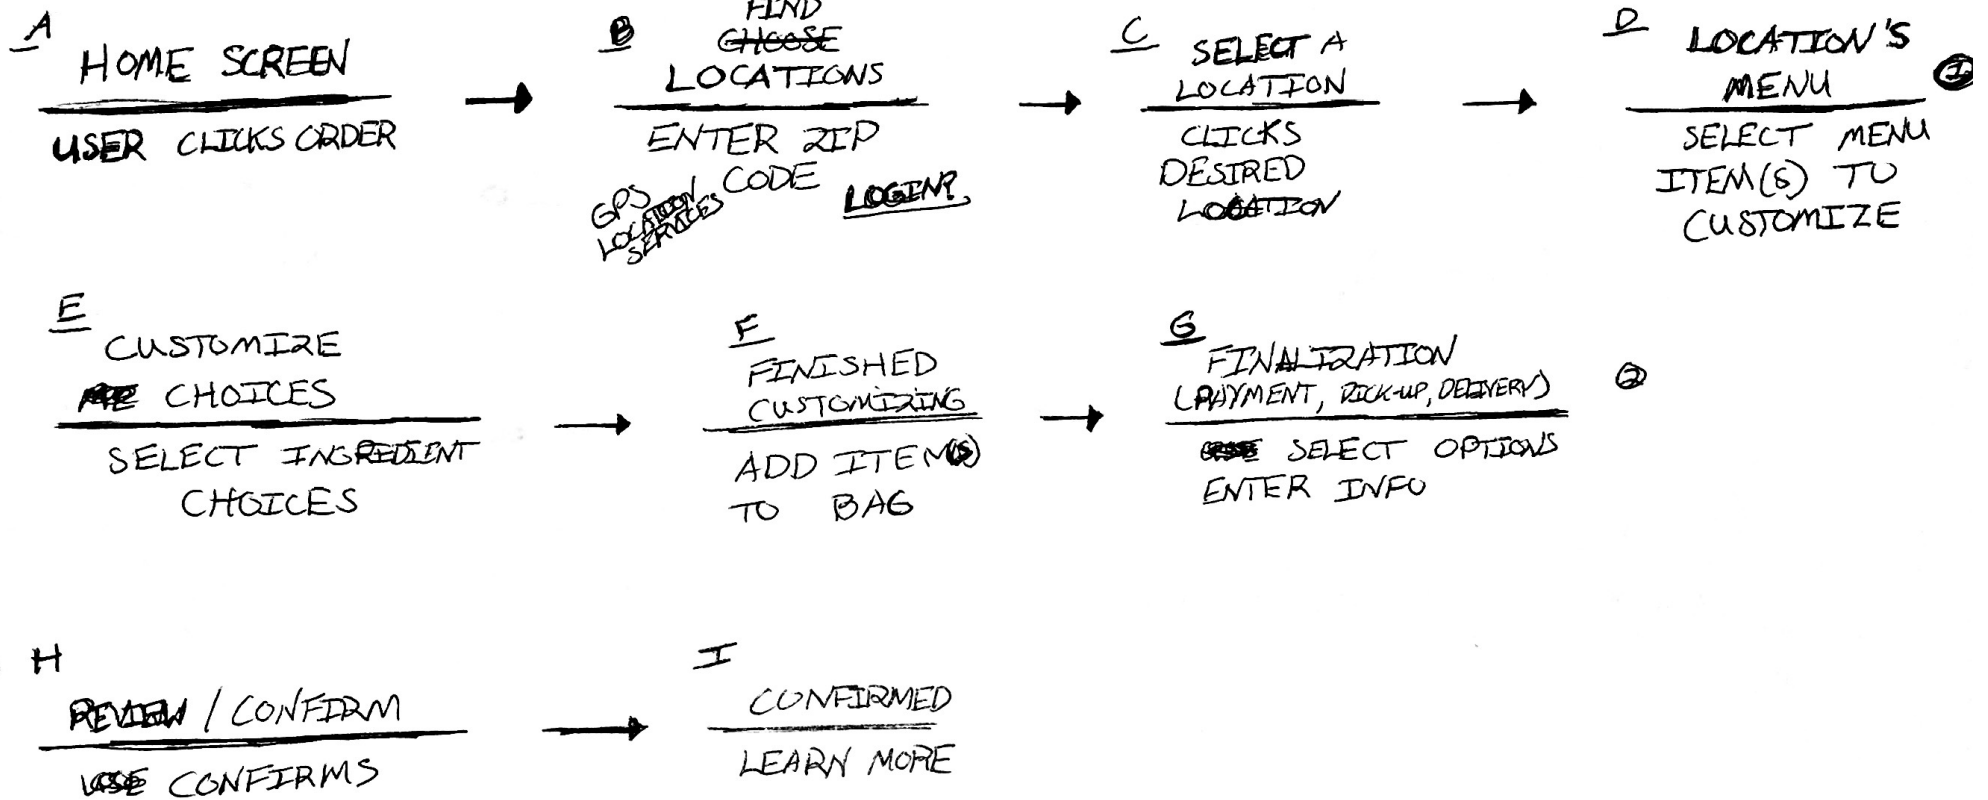 A
HOME SCREEN
USER CLICKS ORDER
B
FIND
CHOOSE
LOCATIONS
ENTER ZIP
CODE
GPS
LOCATION
SERVICES
LOGIN?
C
SELECT A
LOCATION
CLICKS
DESIRED
LOCATION
D
LOCATION'S
MENU
1
SELECT MENU
ITEM(S) TO
CUSTOMIZE
E
CUSTOMIZE
CHOICES
SELECT INGREDIENT
CHOICES
F
FINISHED
CUSTOMIZING
ADD ITEM(S)
TO BAG
G
FINALIZATION
(PAYMENT, PICK-UP, DELIVERY)
2
SELECT OPTIONS
ENTER INFO
H
REVIEW / CONFIRM
CONFIRMS
I
CONFIRMED
LEARN MORE